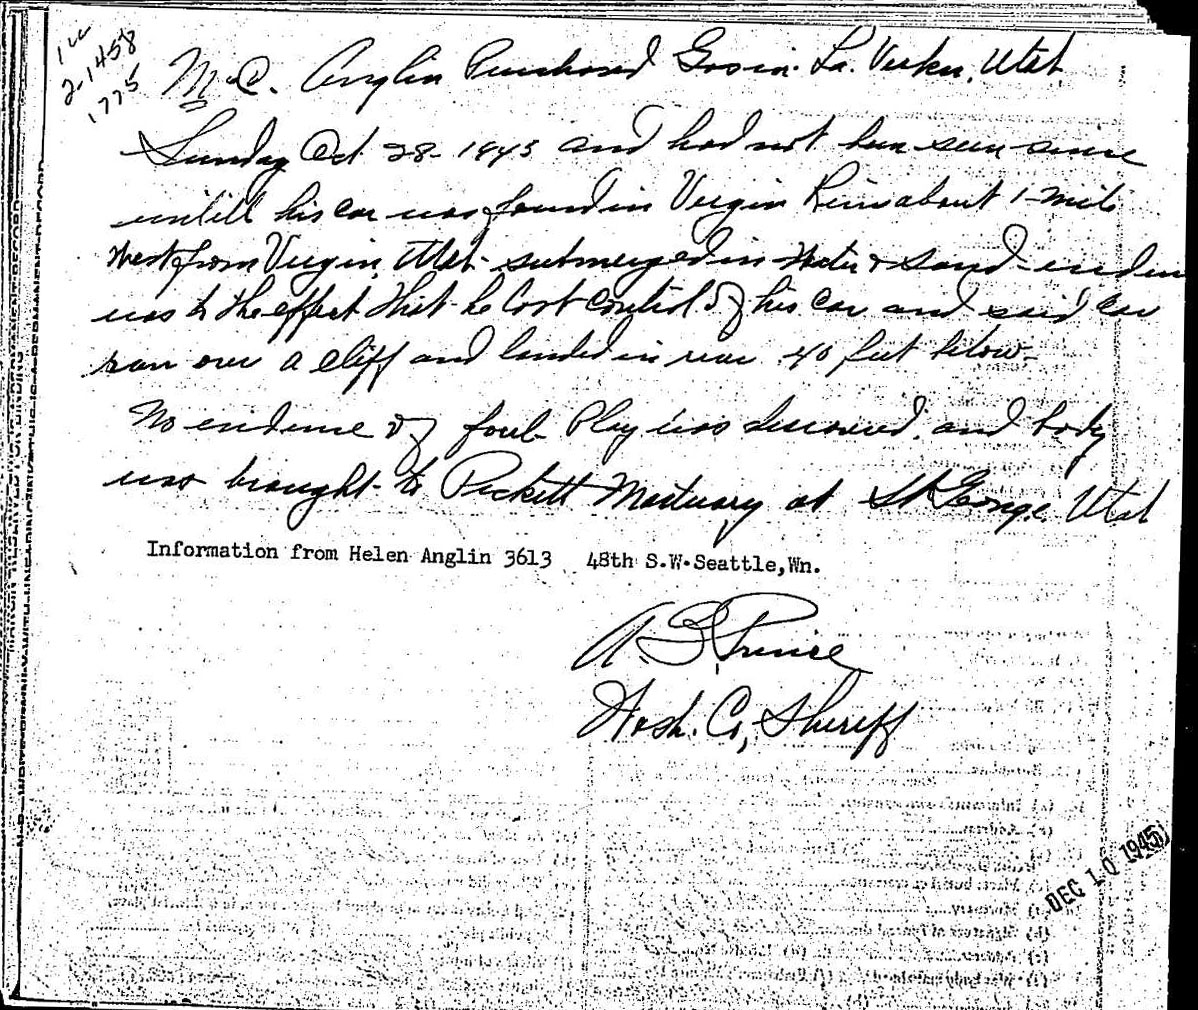 1 cc
2-14-58
1775
M.C. Anglin Purchased Gas in La. Verkin, Utah.
Sunday Oct 28- 1945 and had not been seen since
untill his car was found in Virgin River about 1-mile
West from Virgin, Utah- submerged in Water & sand-
was to the effect that he lost control of his car and said car
ran over a cliff and landed in river 40 feet below-
No evidence of foul Play was discovered, and body
was brought to Pickett Mortuary at St George, Utah
Information from Helen Anglin 3613 48th S.W. Seattle, Wn.
A. B. Prince
Wash. Co, Sheriff
DEC 10 1945